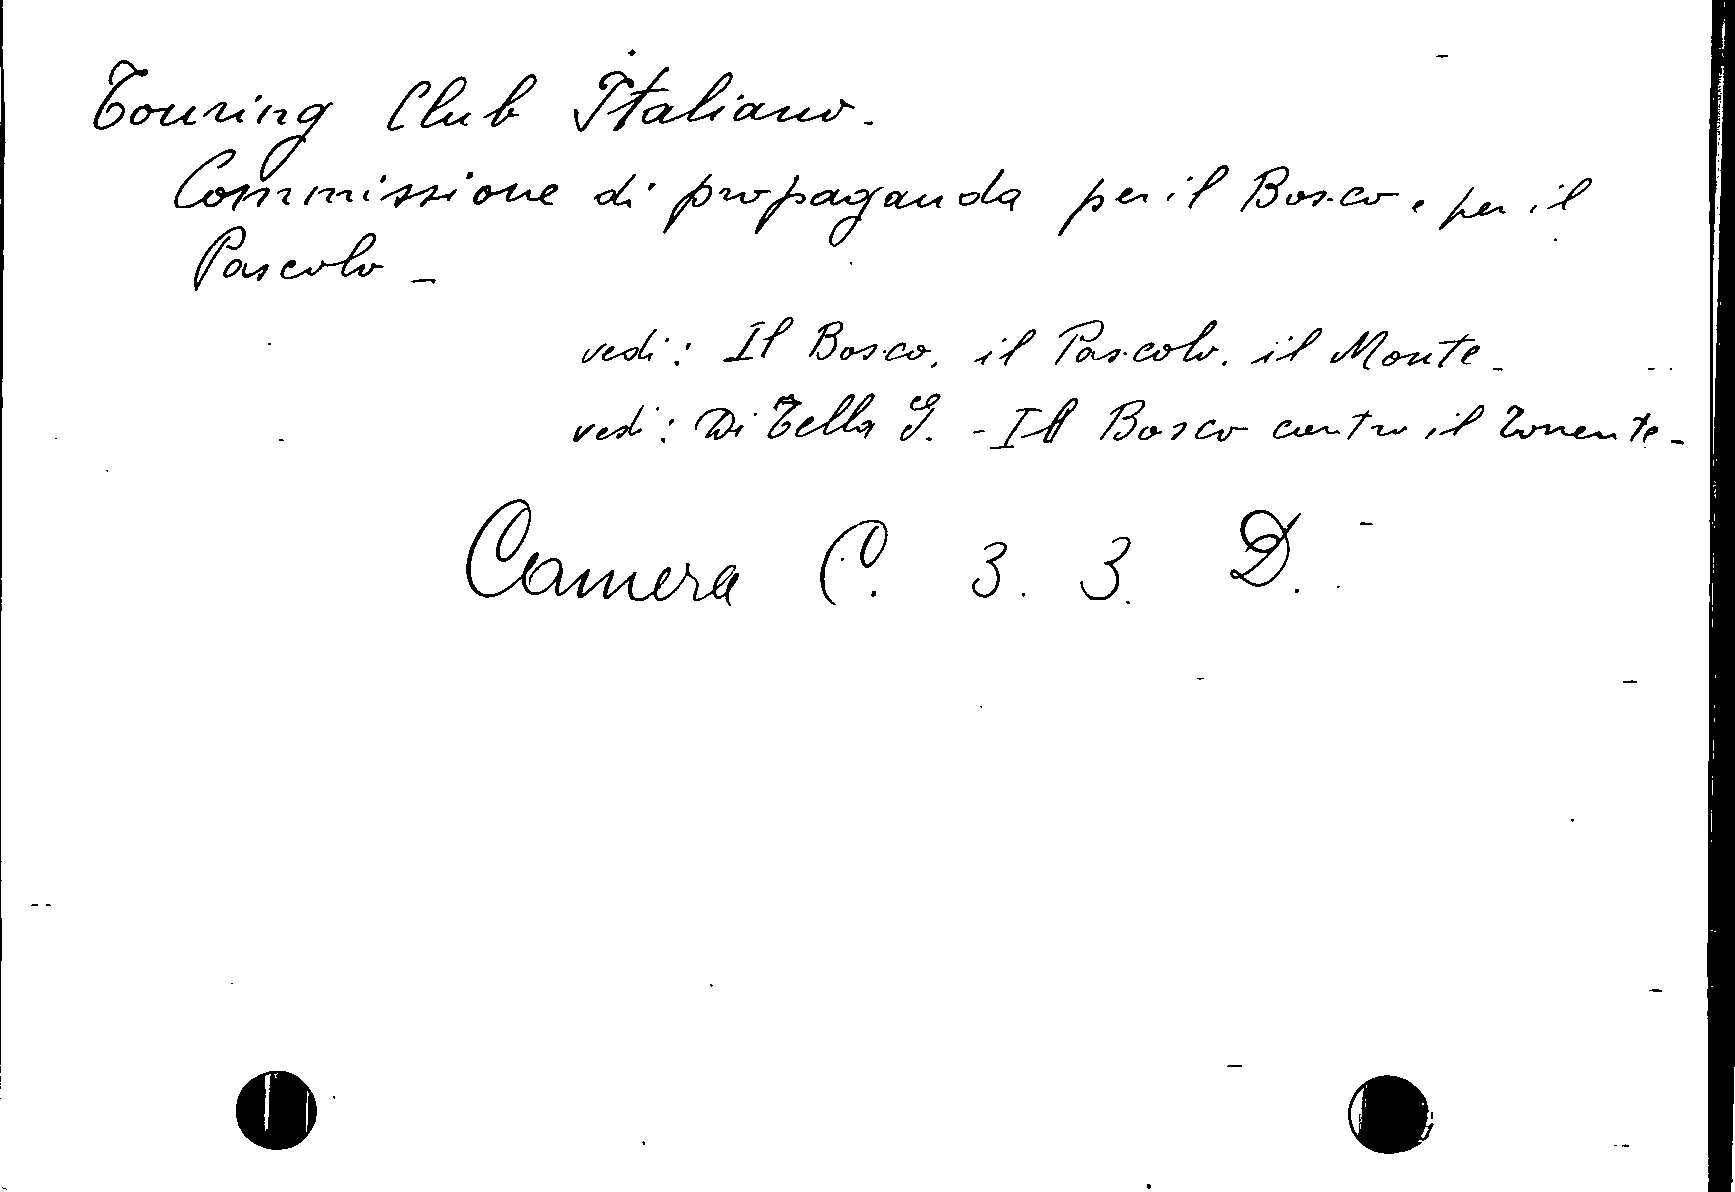 Touring Club Italiano.
Commissione di propaganda per il Bosco e per il
Pascolo -
vedi: Il Bosco, il Pascolo, il Monte -
vedi: Di Tella G. - Il Bosco contro il Torrente -
Camera C. 3. 3. D.